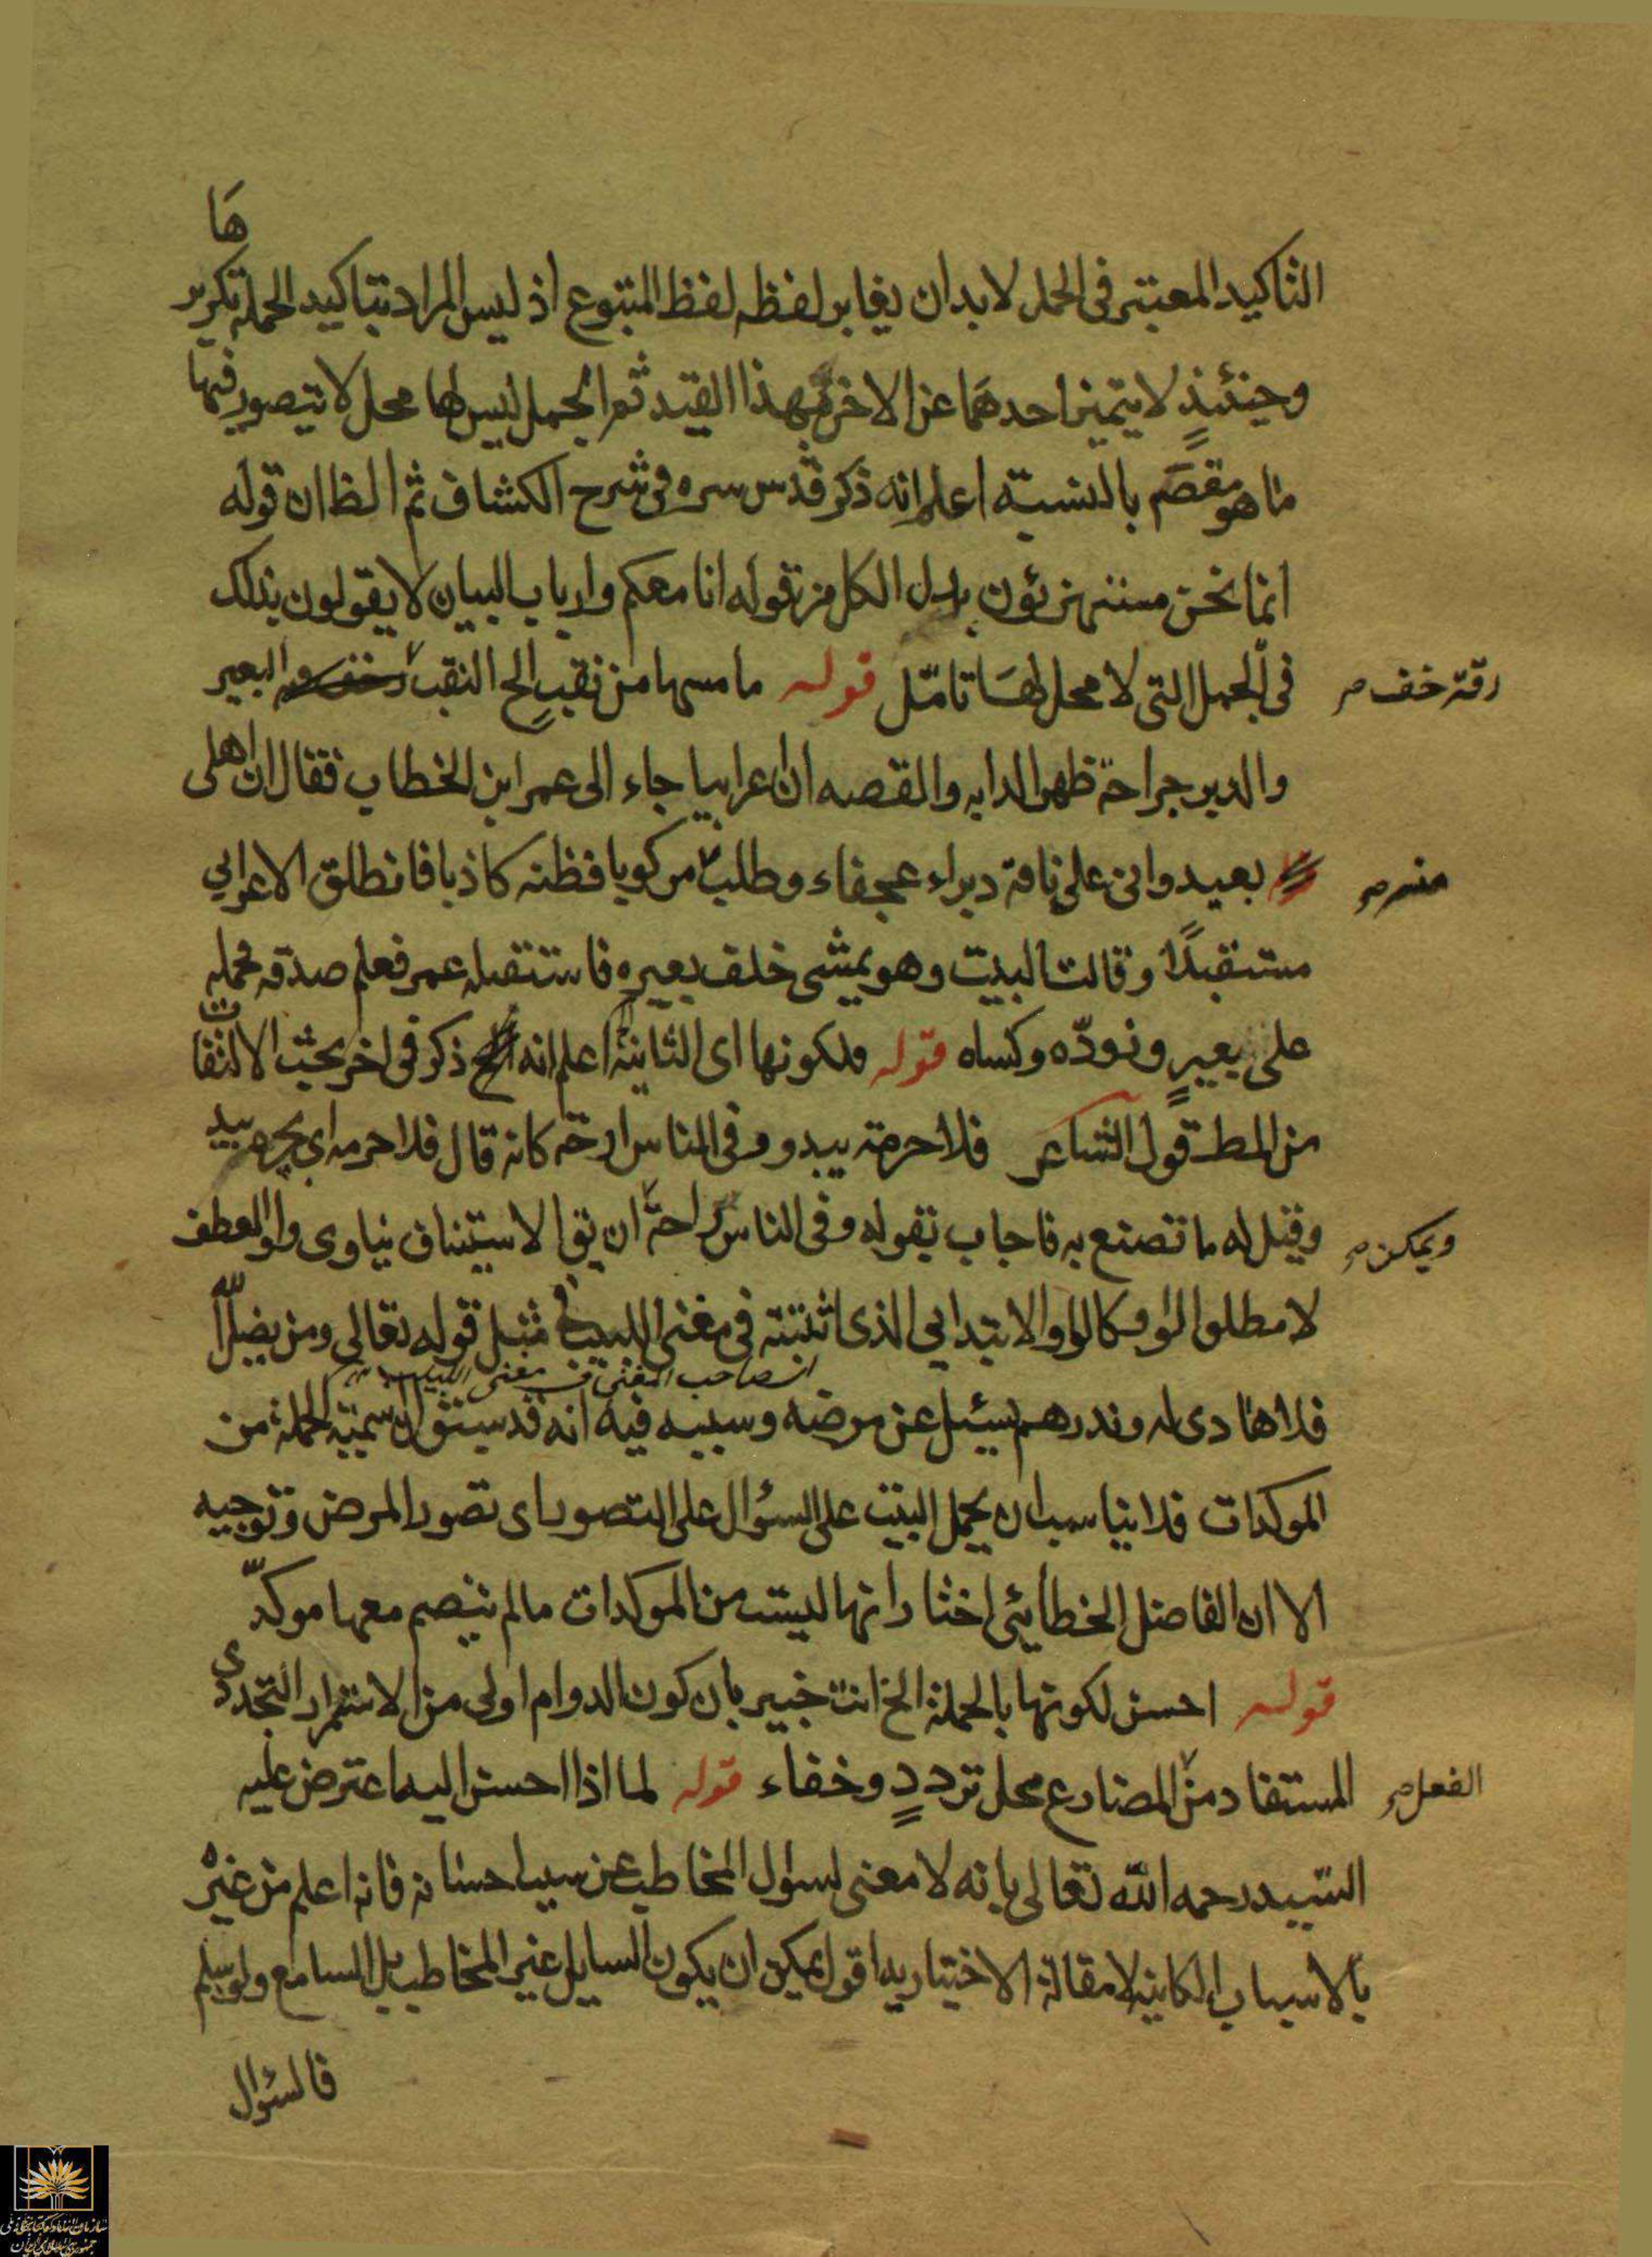 ها
التاكيد المعتبر فى الجمل لابد ان يغاير لفظه لفظ المتبوع اذ ليس المراد بتاكيد الجملة تكرير
وحينئذٍ لا يتميز احدهما عن الاخر بهذا القيد ثم الجمل ليس لها محل لا يتصور فيها
ما هو مقصم بالنسبة اعلم انه ذكر قدس سره فى شرح الكشاف ثم الظ ان قوله
انما نحن مستهزؤن بدل الكل من قوله انا معكم وارباب البيان لا يقولون بذلك
فى الجمل التى لا محل لها تامّل قوله ما مسها من نقب الخ النقب البعير
رقة خف صح
والدبر جراحة ظهر الدابه والقصه ان اعرابيا جاء الى عمر ابن الخطاب فقال ان اهلى
بعيد وانى على ناقة دبراء عجفاء وطلب مركوبا فظنه كاذبا فانطلق الاعرابي
منه صح
مستقبلًا وقالت البيت وهو يمشى خلف بعيره فاستقبله عمر فعلم صدقه فحمله
على بعيرٍ وزوّده وكساه قوله ولكونها اى الثانية اعلم انه ذكر فى اخر بحث الالتفات
من المط قول الشاعر فلا حرمه يبدو وفى الناس راحة كانه قال فلا حرمه اي هجره يبدو
وقيل له ما تصنع به فاجاب بقوله وفى الناس راحة ان يق الاستيناف ينا وى واو العطف
ويمكن صح
لا مطلوا الواو كالواو الابتدايي الذى اثبتته فى مغنى اللبيب مثل قوله تعالى ومن يضلل الله
اى صاحب المغنى فى مغنى اللبيب
فلا هادى له ونذرهم سيئل عن مرضه وسببه فيه انه قد سبق ان اسمية الجملة من
الموكدات فلا يناسب ان يحمل البيت على السؤال على التصور اى تصور المرض وتوجيه
الا ان الفاضل الخطايئي اختار انها ليست من الموكدات مالم ينضم معها موكدّ
قوله احسن لكونها بالجملة الخ انت خبير بان كون الدوام اولى من الاستمرار التجددى
المستفاد من المضارع محل ترددٍ وخفاء قوله لما اذا احسن اليه اعترض عليه
الفعل صح
السّيد رحمه الله تعالى بانه لا معنى لسؤال المخاطب عن سبب احسانه فانه اعلم من غيره
بالاسباب الكاينه لامقالة الاختياريه اقول يمكن ان يكون السايل غير المخاطب بل السامع ولو سلم
فالسؤال